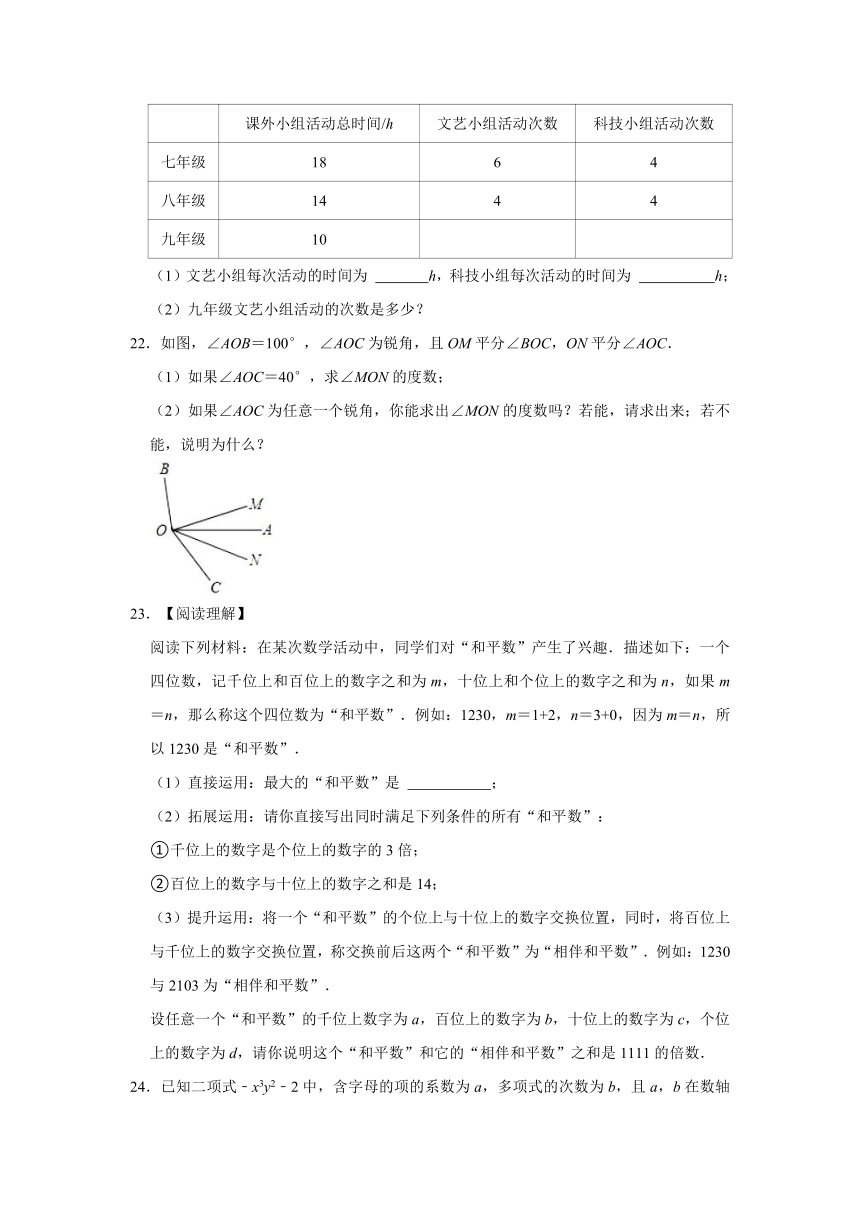 课外小组活动总时间/h 文艺小组活动次数 科技小组活动次数
七年级 18 6 4
八年级 14 4 4
九年级 10
（1）文艺小组每次活动的时间为 ______h，科技小组每次活动的时间为 ________h；
（2）九年级文艺小组活动的次数是多少？
22．如图，∠AOB＝100°，∠AOC为锐角，且OM平分∠BOC，ON平分∠AOC．
（1）如果∠AOC＝40°，求∠MON的度数；
（2）如果∠AOC为任意一个锐角，你能求出∠MON的度数吗？若能，请求出来；若不
能，说明为什么？
B
M
O
A
N
C
23．【阅读理解】
阅读下列材料：在某次数学活动中，同学们对“和平数”产生了兴趣．描述如下：一个
四位数，记千位上和百位上的数字之和为m，十位上和个位上的数字之和为n，如果m
＝n，那么称这个四位数为“和平数”．例如：1230，m＝1+2，n＝3+0，因为m＝n，所
以1230是“和平数”．
（1）直接运用：最大的“和平数”是 ________；
（2）拓展运用：请你直接写出同时满足下列条件的所有“和平数”：
①千位上的数字是个位上的数字的3倍；
②百位上的数字与十位上的数字之和是14；
（3）提升运用：将一个“和平数”的个位上与十位上的数字交换位置，同时，将百位上
与千位上的数字交换位置，称交换前后这两个“和平数”为“相伴和平数”．例如：1230
与2103为“相伴和平数”．
设任意一个“和平数”的千位上数字为a，百位上的数字为b，十位上的数字为c，个位
上的数字为d，请你说明这个“和平数”和它的“相伴和平数”之和是1111的倍数．
24．已知二项式﹣x³y²﹣2中，含字母的项的系数为a，多项式的次数为b，且a，b在数轴